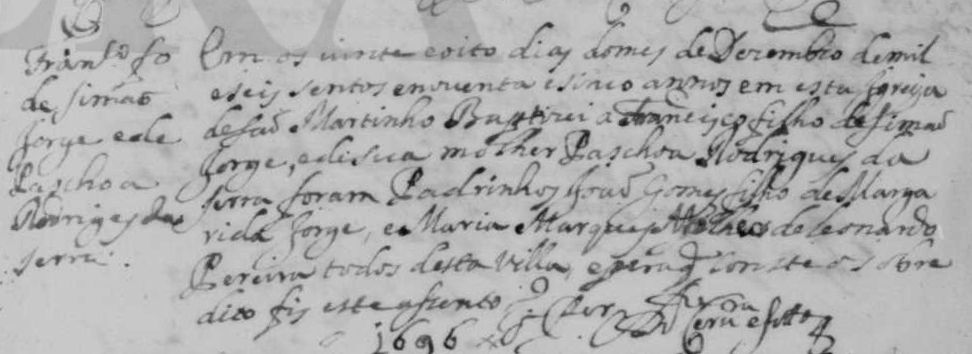 Fran.co fo
de Simão
Jorge e de
Paschoa
Rodriges da
serra.
Em os vinte e oito dias do mes de Dezembro de mil
e seis sentos e noventa e sinco annos em esta Igreija
de São Martinho Bauptizei a Francisco filho de Simão
Jorge, e de sua molher Paschoa Rodrigues da
serra foram Padrinhos João Gomes filho de Marga
rida Jorge, e Maria Marques Molher de Leonardo
Pereira todos desta Villa, e pera q conste o sobre
dito fis este asento
1696